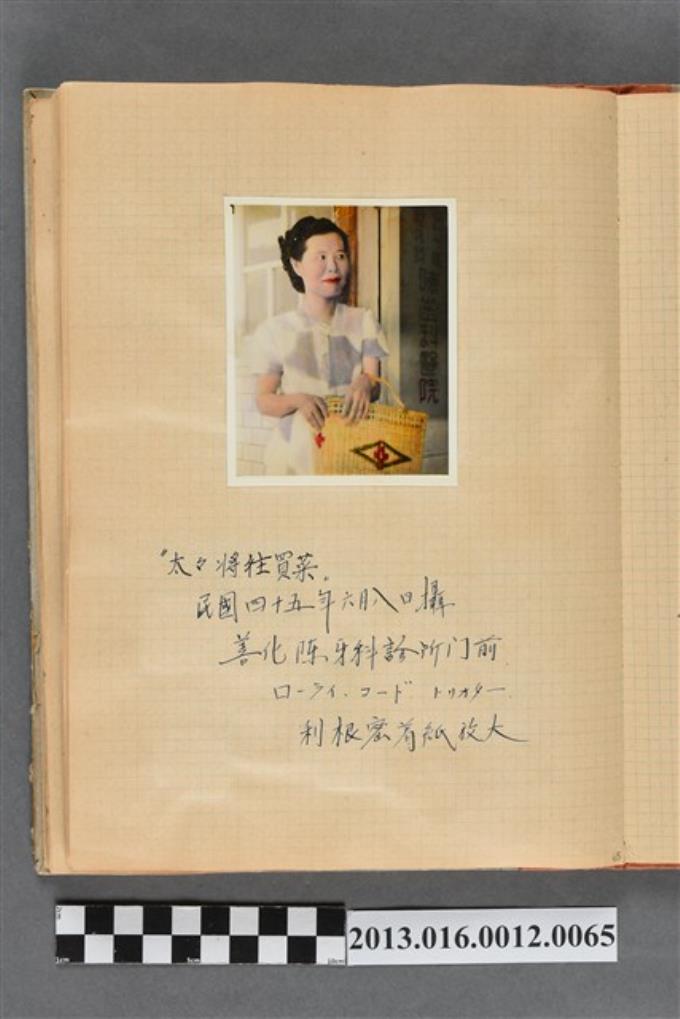 陳齒科醫院
〝太々將往買菜〟
民國四十五年六月八日攝
善化陳牙科診所门前
ローライ.コード トリオター
利根密着紙放大
65
2013.016.0012.0065
1cm
5cm
10cm